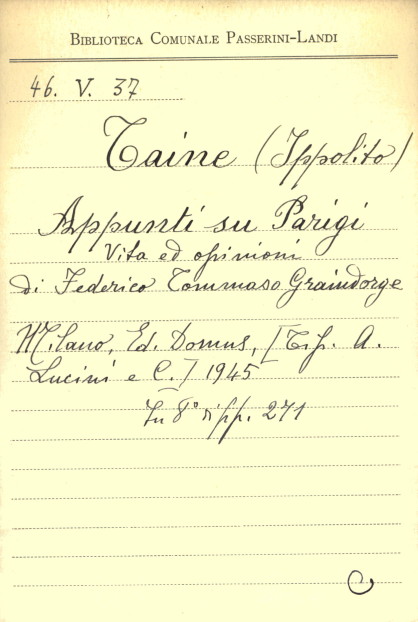 BIBLIOTECA COMUNALE PASSERINI-LANDI
46. V. 37
Taine (Ippolito)
Appunti su Parigi
Vita ed opinioni
di Federico Tommaso Graindorge
Milano, Ed. Domus, [Tip. A.
Lucini e C.] 1945
In 8° di pp. 271
C